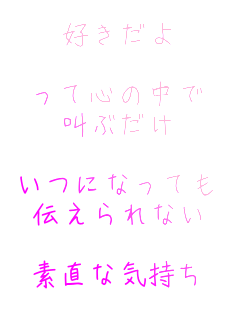 好きだよ
って心の中で
叫ぶだけ
いつになっても
伝えられない
素直な気持ち